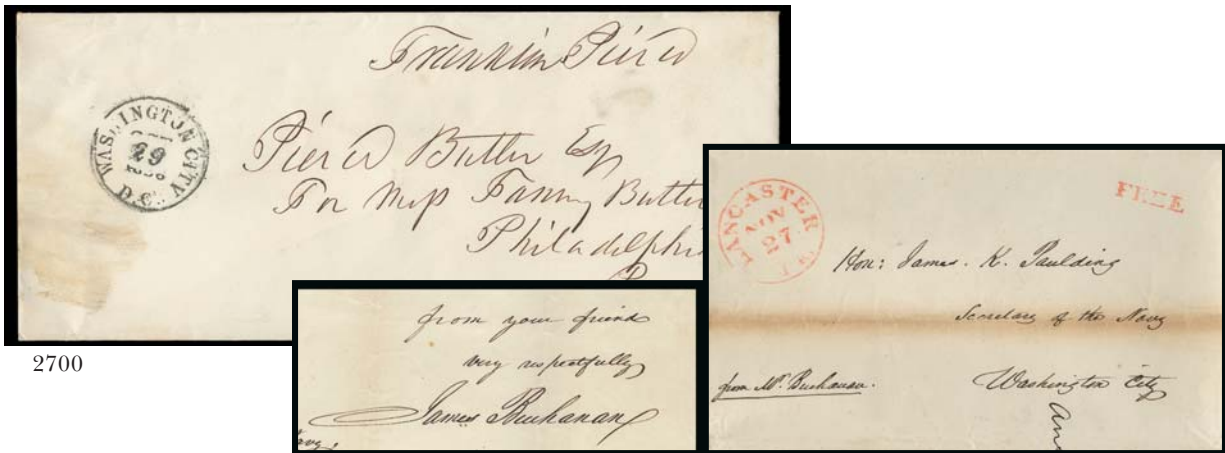 Franklin Pierce
WASHINGTON CITY
29
D.C.
Pierce Butler Esq
For Miss Fanny Butler
Philadelphi
2700
from your friend
very respectfully
James Buchanan
LANCASTER
NOV
27
FREE
Hon: James. K. Paulding
Secretary of the Navy
from Mr. Buchanan.
Washington City